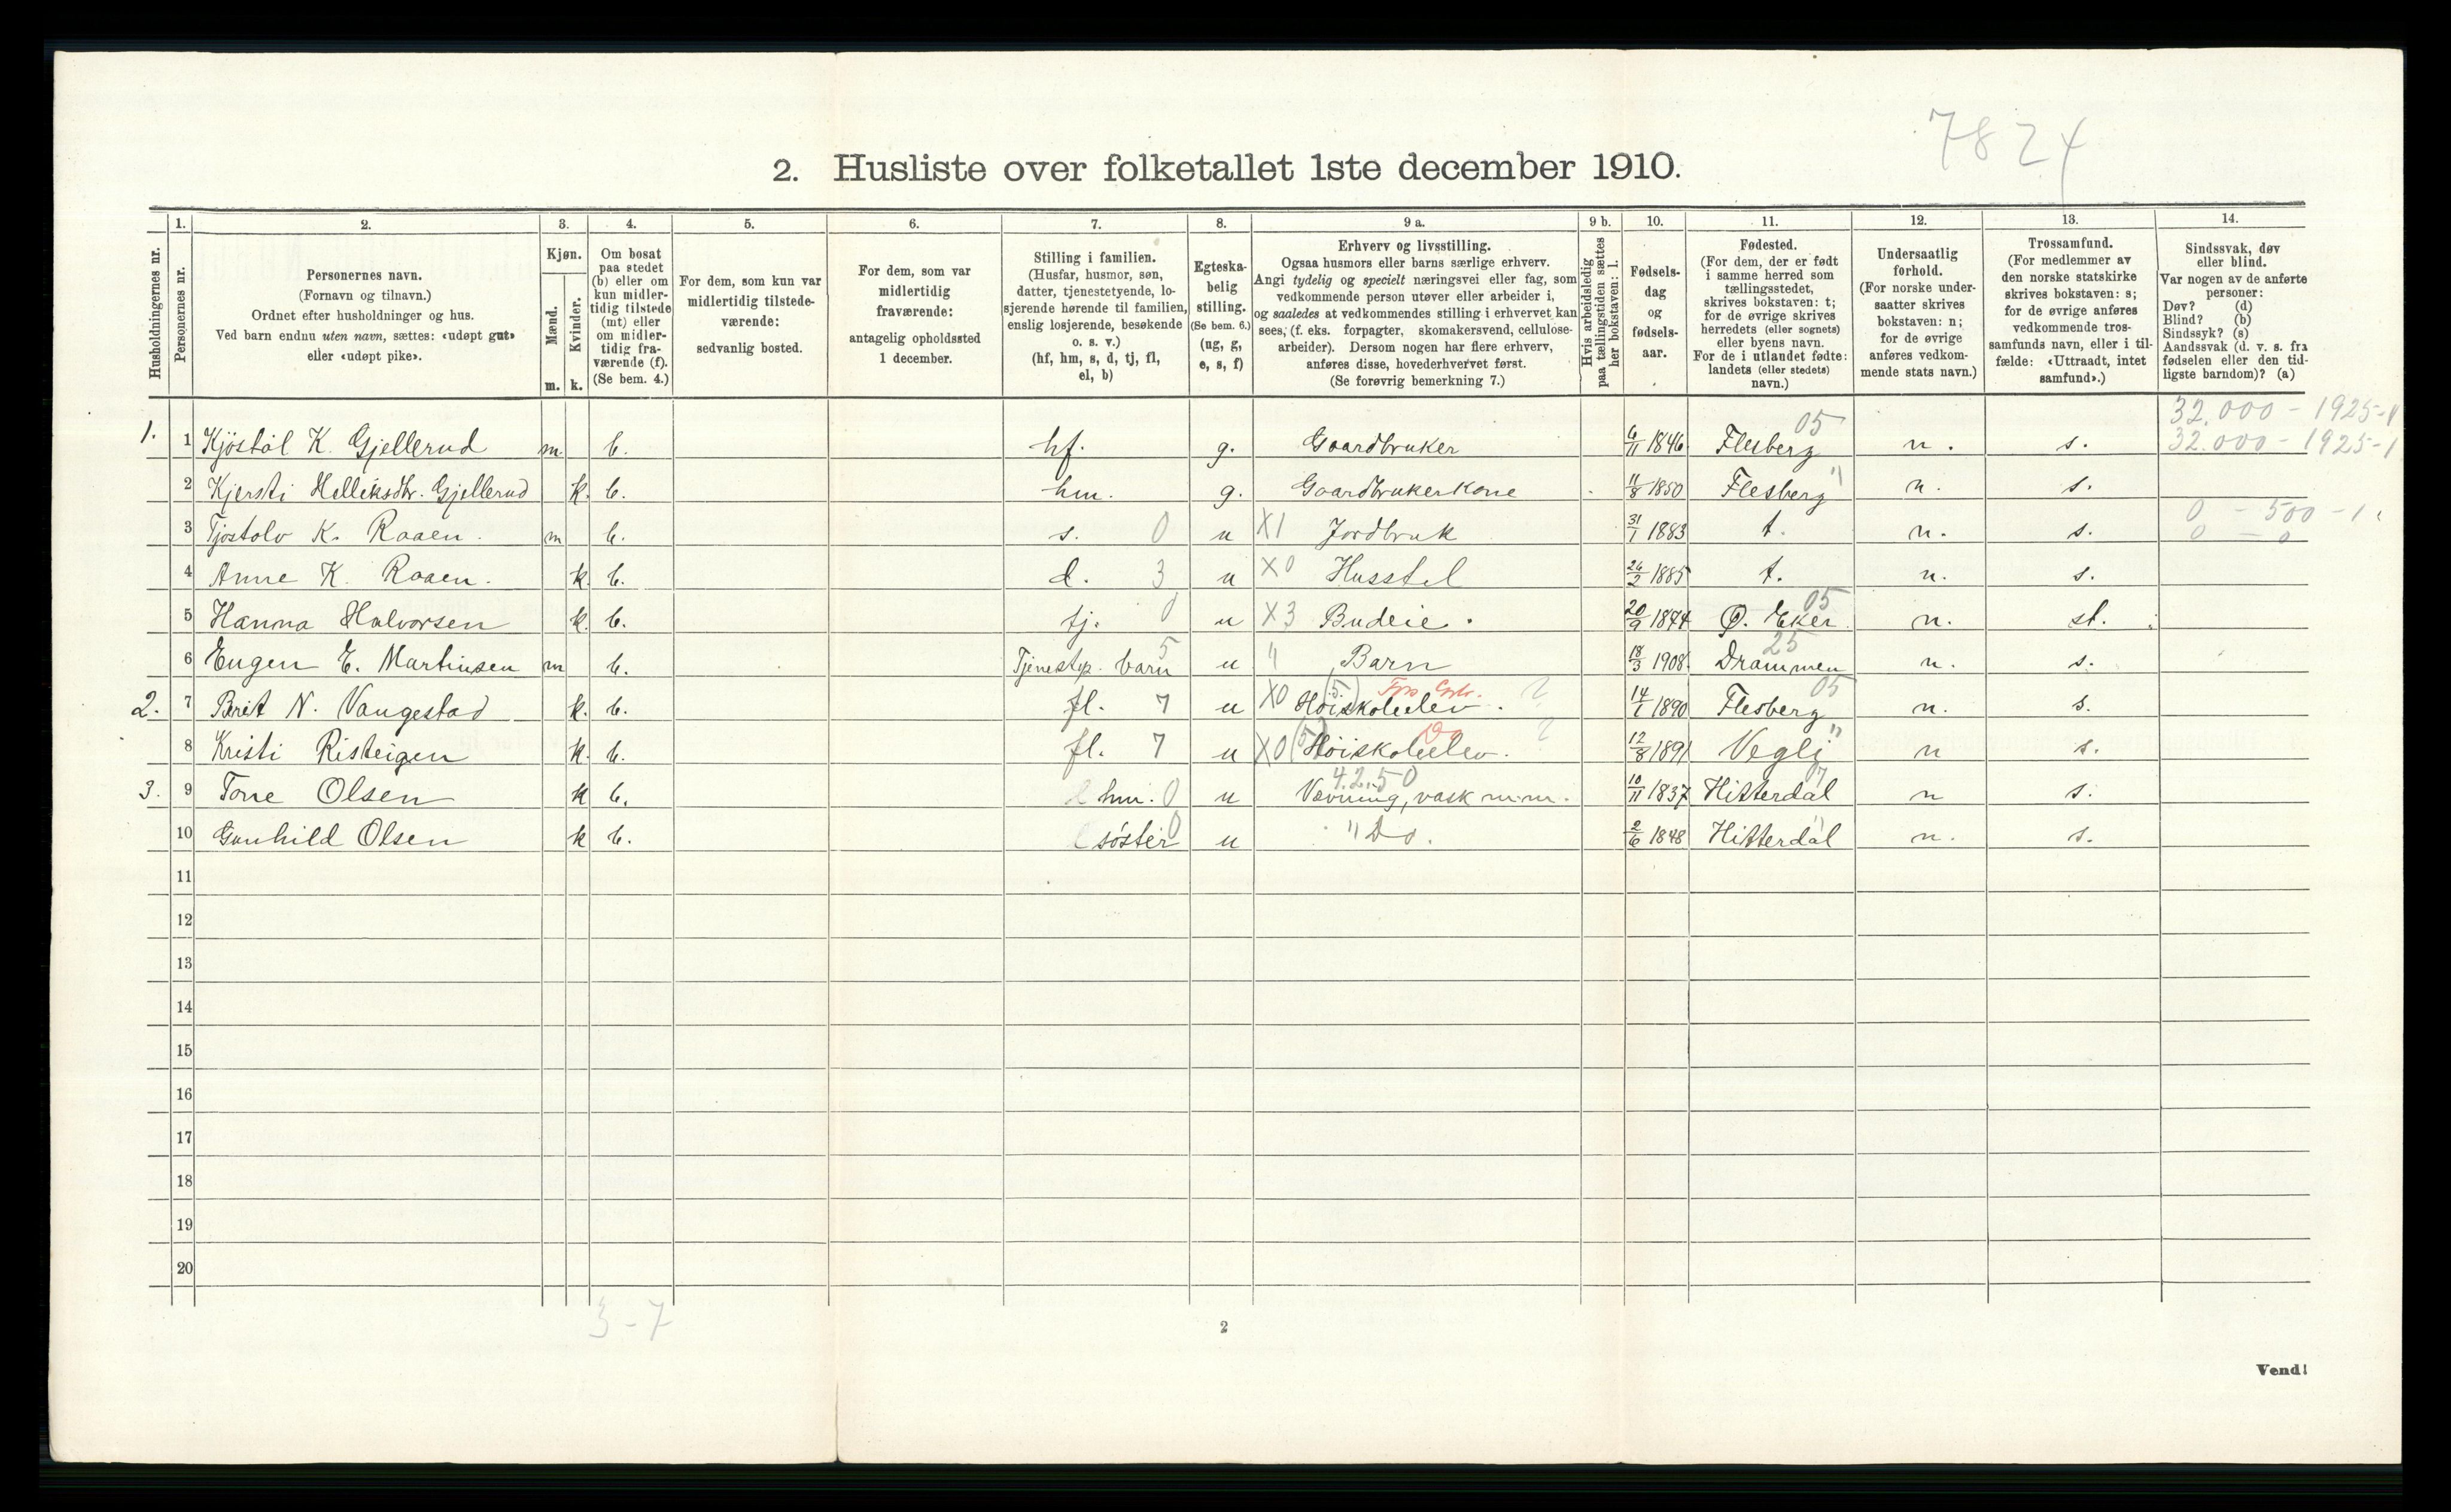 7824
2. Husliste over folketallet 1ste december 1910.
Husholdningernes nr.
1. Personernes nr.
2. Personernes navn.
(Fornavn og tilnavn.)
Ordnet efter husholdninger og hus.
Ved barn endnu uten navn, sættes: «udøpt gut»
eller «udøpt pike».
3. Kjøn.
Mænd. m.
Kvinder. k.
4. Om bosat
paa stedet
(b) eller om
kun midler-
tidig tilstede
(mt) eller
om midler-
tidig fra-
værende (f).
(Se bem. 4.)
5. For dem, som kun var
midlertidig tilstede-
værende:
sedvanlig bosted.
6. For dem, som var
midlertidig
fraværende:
antagelig opholdssted
1 december.
7. Stilling i familien.
(Husfar, husmor, søn,
datter, tjenestetyende, lo-
sjerende hørende til familien,
enslig losjerende, besøkende
o. s. v.)
(hf, hm, s, d, tj, fl,
el, b)
8. Egteska-
belig
stilling.
(Se bem. 6.)
(ug, g,
e, s, f)
9 a. Erhverv og livsstilling.
Ogsaa husmors eller barns særlige erhverv.
Angi tydelig og specielt næringsvei eller fag, som
vedkommende person utøver eller arbeider i,
og saaledes at vedkommendes stilling i erhvervet kan
sees, (f. eks. forpagter, skomakersvend, cellulose-
arbeider). Dersom nogen har flere erhverv,
anføres disse, hovederhvervet først.
(Se forøvrig bemerkning 7.)
9 b. Hvis arbeidsledig
paa tællingstiden sættes
her bokstaven: l.
10. Fødsels-
dag
og
fødsels-
aar.
11. Fødested.
(For dem, der er født
i samme herred som
tællingsstedet,
skrives bokstaven: t;
for de øvrige skrives
herredets (eller sognets)
eller byens navn.
For de i utlandet fødte:
landets (eller stedets)
navn.)
12. Undersaatlig
forhold.
(For norske under-
saatter skrives
bokstaven: n;
for de øvrige
anføres vedkom-
mende stats navn.)
13. Trossamfund.
(For medlemmer av
den norske statskirke
skrives bokstaven: s;
for de øvrige anføres
vedkommende tros-
samfunds navn, eller i til-
fælde: «Uttraadt, intet
samfund».)
14. Sindssvak, døv
eller blind.
Var nogen av de anførte
personer:
Døv? (d)
Blind? (b)
Sindssyk? (s)
Aandssvak (d. v. s. fra
fødselen eller den tid-
ligste barndom)? (a)
05 32.000 - 1925-1
1. 1 Kjöstöl K. Gjellerud m. b. hf. g. Gaardbruker 6/11 1846 Flesberg n. s. 32.000 - 1925-1
2 Kjersti Helleksdtr. Gjellerud k. b. hm. g. Gaardbrukerkone 11/8 1850 Flesberg " n. s.
0 - 500 - 1
3 Tjostolv K. Raaen. m b. s. 0 u X1 Jordbruk 31/1 1883 t. n. s. 0 - 0
4 Anne K. Raaen. k. b. d. 3 u X0 Husstel 26/2 1885 t. n. s.
5 Hanna Halvorsen k. b. tj. 0 u X3 Budeie. 20/9 1874 Ø. Eker. 05 n. st.
6 Eugen E. Martinsen m b. Tjenestep. barn 5 u " Barn 18/3 1908. Drammen 25 n. s.
2. 7 Berit N. Vangestad k. b. fl. 7 u X0 (5) Høiskoleelev. ? 14/1 1890 Flesberg 05 n. s.
8 Kristi Risteigen k. b. fl. 7 u X0 (5) Høiskoleelev. Do ? 12/8 1891 Vegli " n s.
4.2.50
3. 9 Tone Olsen k b. hm. 0 u Vævning, vask m.m. 10/11 1837 Hitterdal 07 n s.
10 Gunhild Olsen k b. søster 0 u " Do. 2/6 1848 Hitterdal " n. s.
11
12
13
14
15
16
17
18
19
20
3-7
2
Vend!